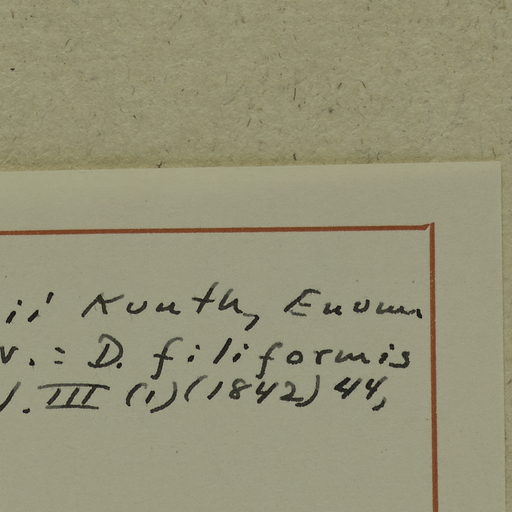 ii Kunth, Enum
v. = D. filiformis
). III (1) (1842) 44,